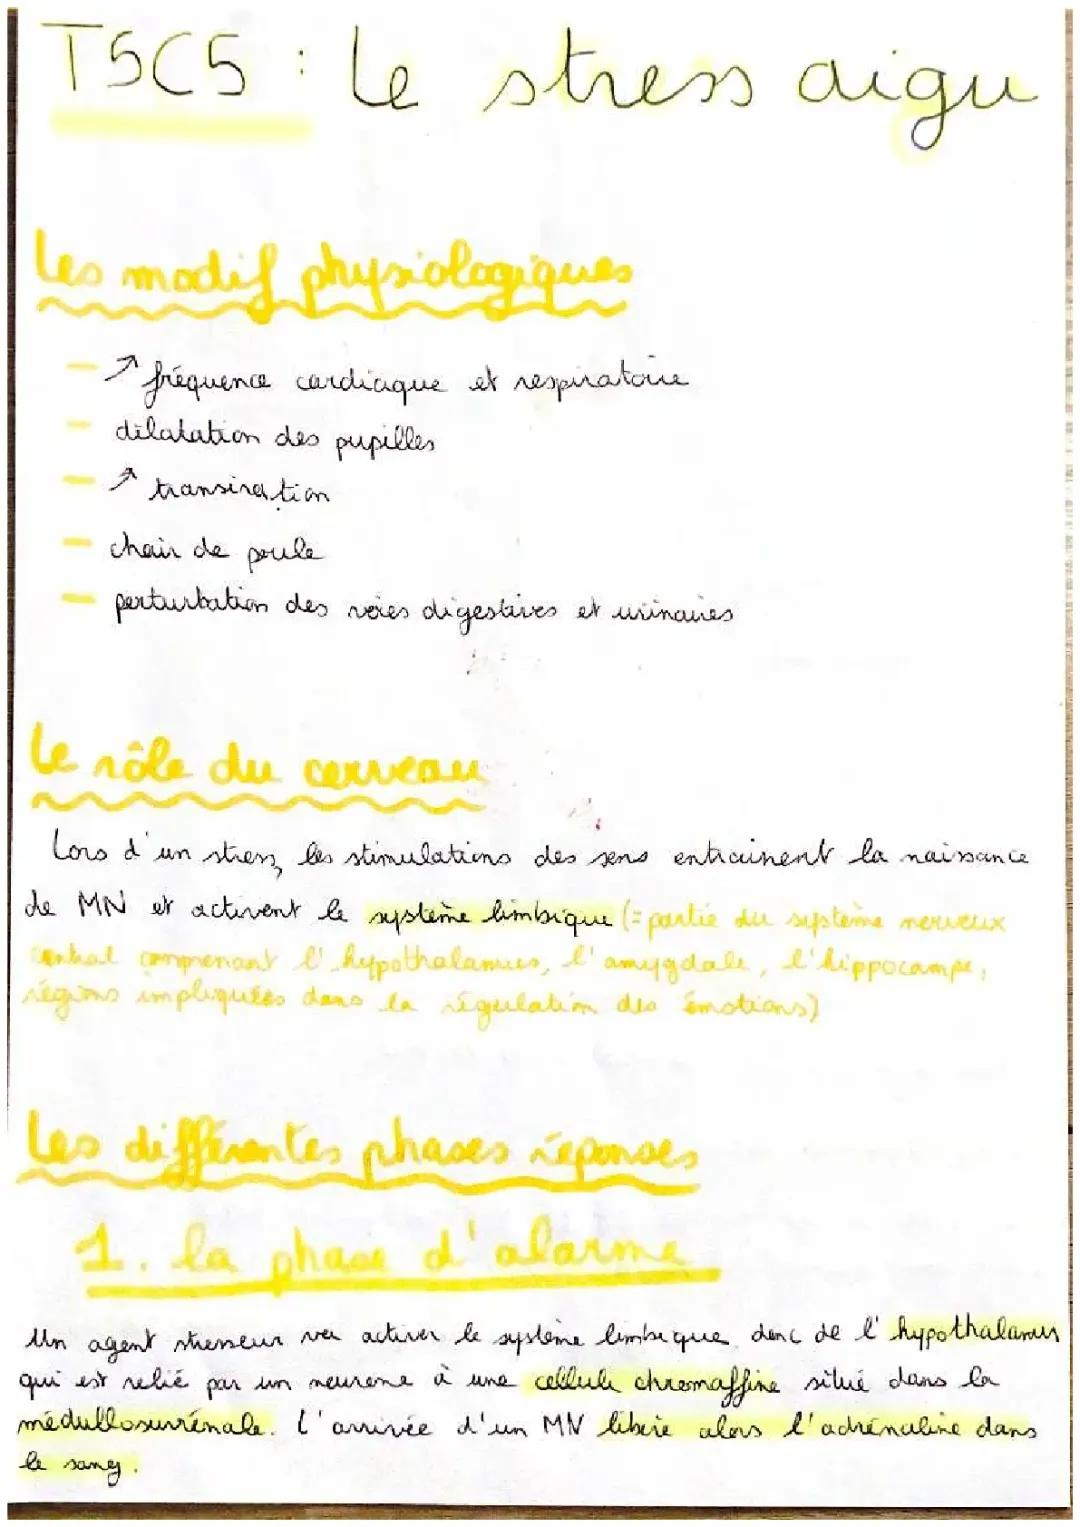 T5C5 : Le stress aigu
Les modif physiologiques
- ↗ fréquence cardiaque et respiratoire
- dilatation des pupilles
- ↗ transiration
- chair de poule
- perturbation des voies digestives et urinaires
Le rôle du cerveau
Lors d'un stress, les stimulations des sens entrainent la naissance
de MN et activent le système limbique (= partie du système nerveux
central comprenant l'hypothalamus, l'amygdale, l'hippocampe,
régions impliquées dans la régulation des émotions)
Les différentes phases réponses
1. la phase d'alarme
Un agent stresseur va activer le système limbique donc de l'hypothalamus
qui est relié par un neurone à une cellule chromaffine situé dans la
médullosurrénale. L'arrivée d'un MN libère alors l'adrénaline dans
le sang.